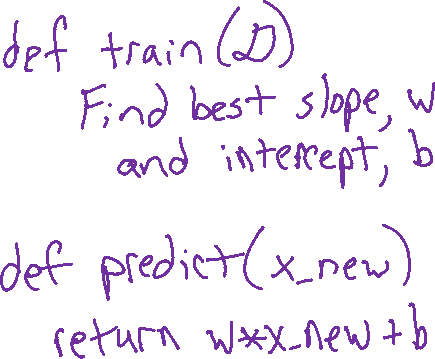 def train(D)
Find best slope, w
and intercept, b
def predict(x_new)
return w*x_new+b